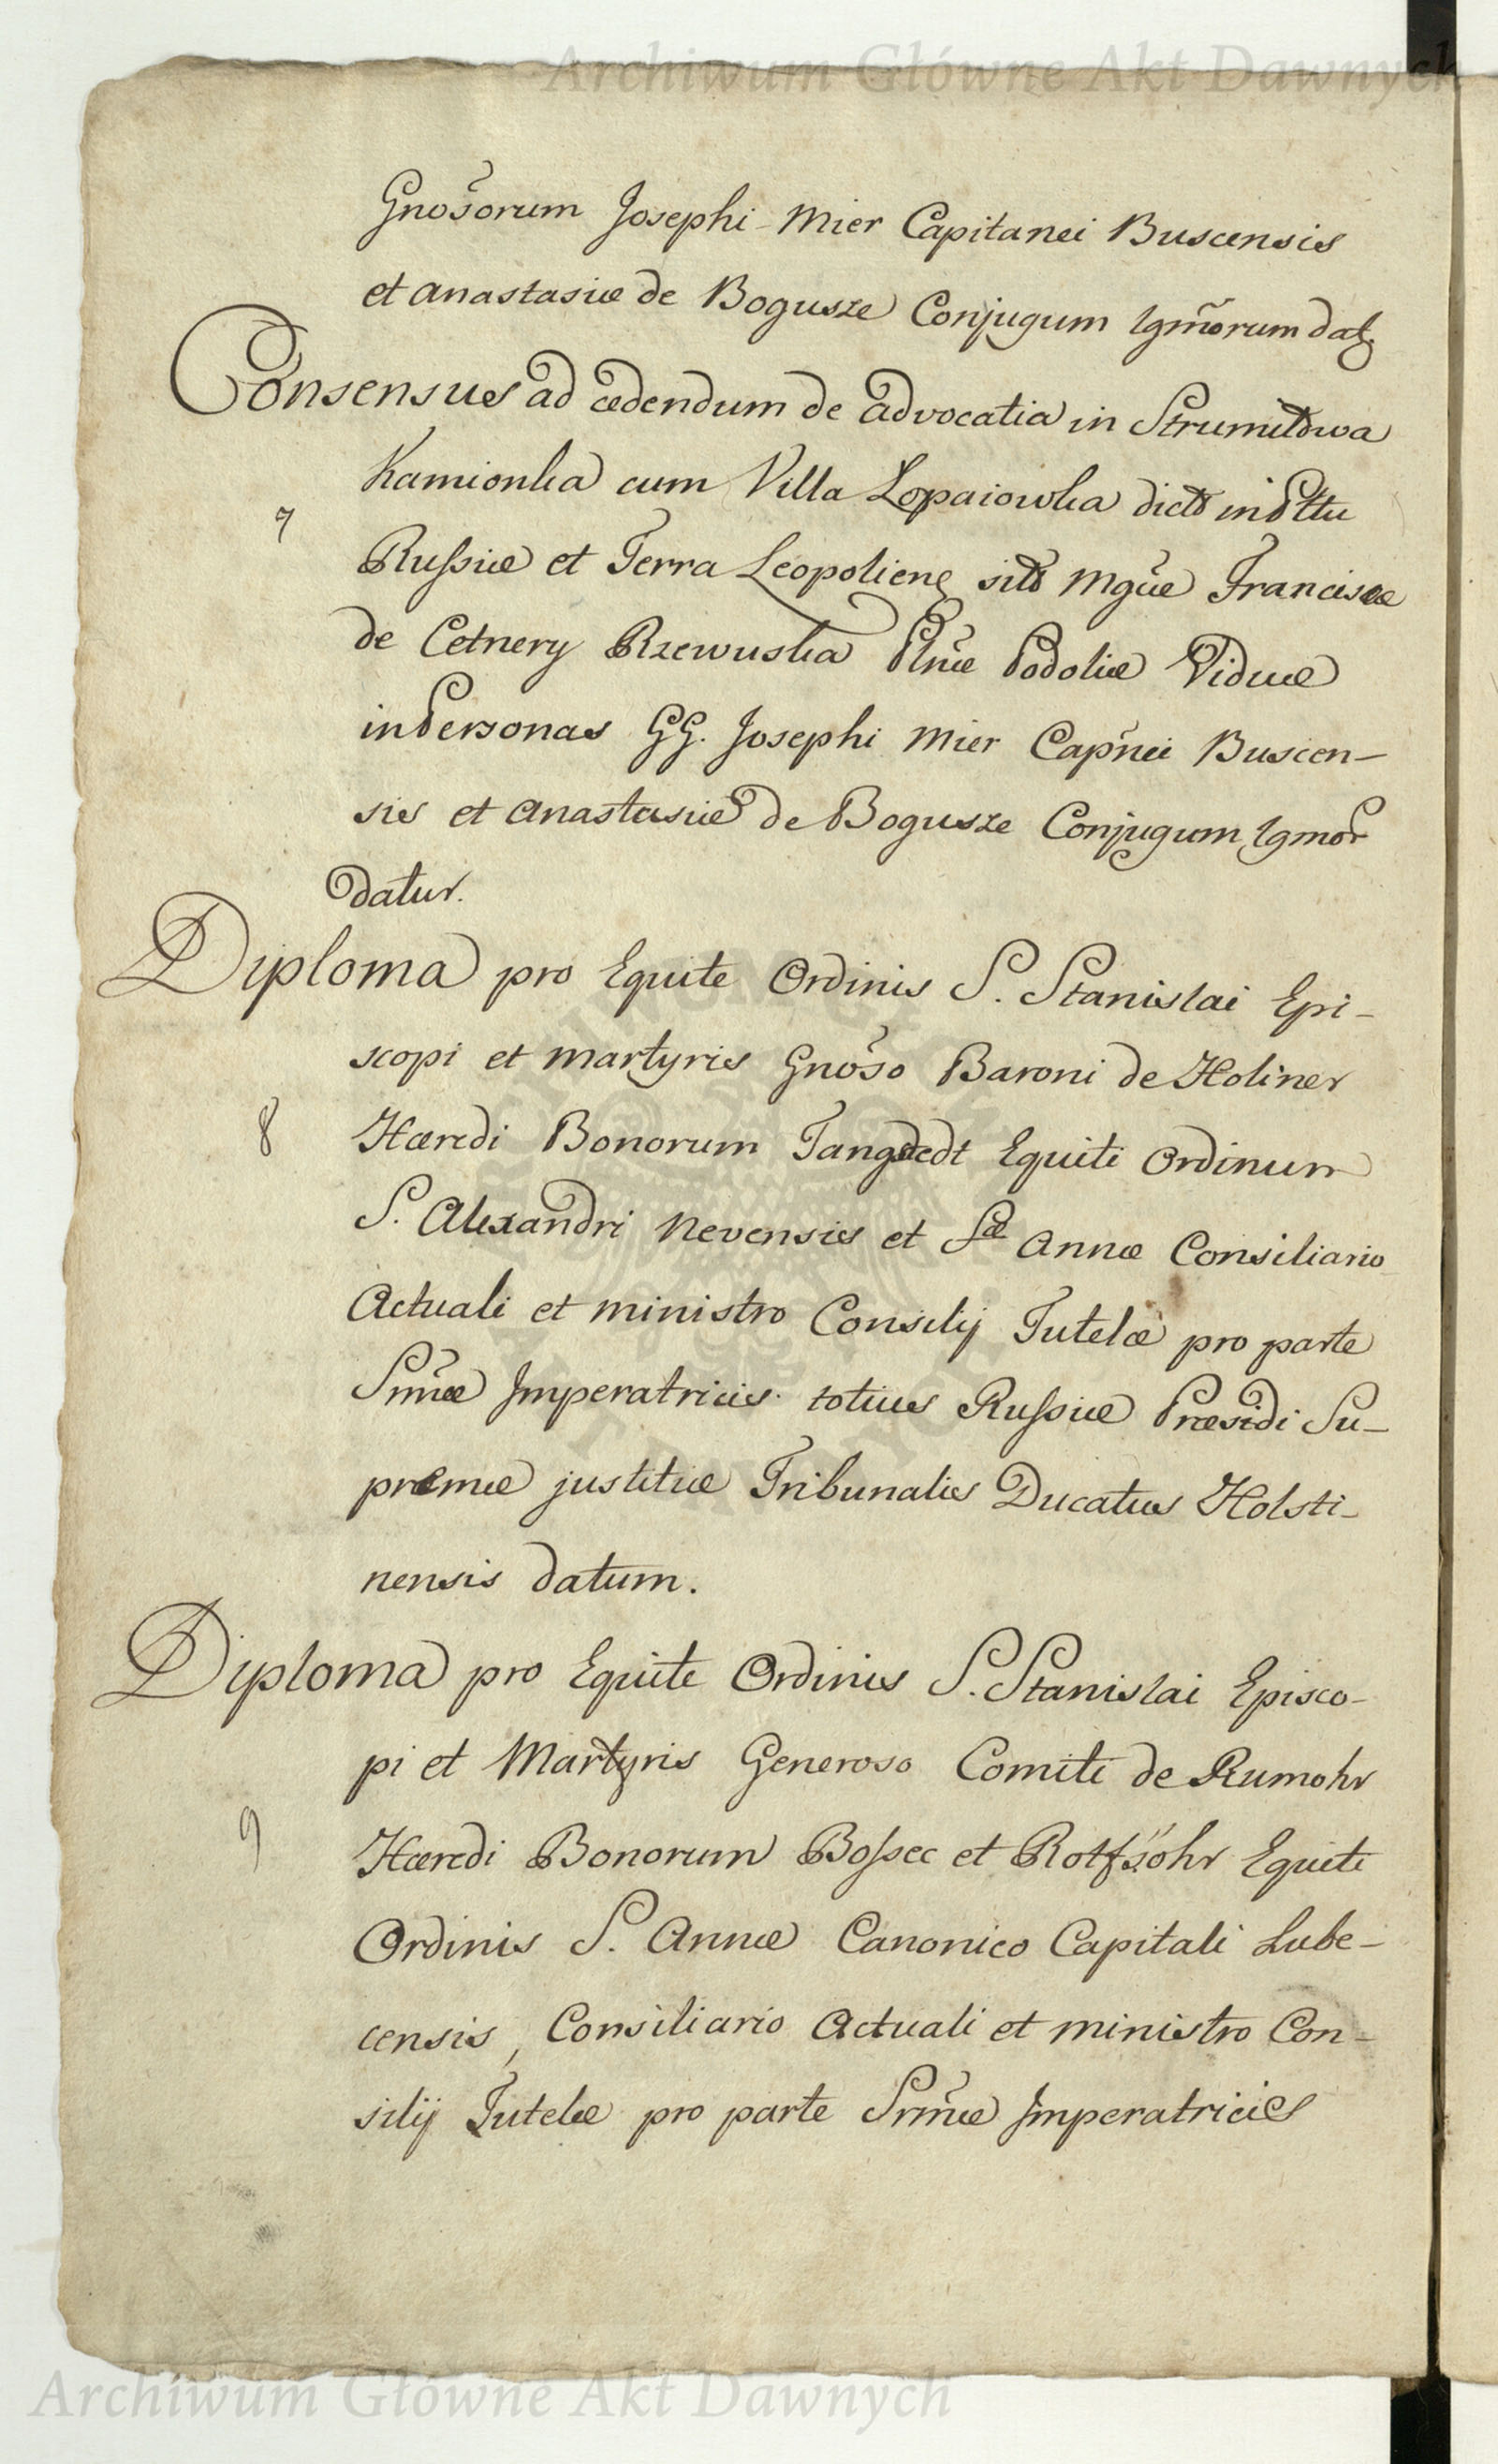 Archiwum Główne Akt Dawnych
Gnõsorum Josephi Mier Capitanei Buscensis
et Anastasiæ de Bogusze Conjugum Igmõrum datƺ
Consensus ad cedendum de Advocatia in Strumiłowa
Kamionka cum Villa Lopaiowka dicts in Pltu
7
Russiæ et Terra Leopolien sits Mgñæ Franciscæ
de Cetnery Rzewuska Plnæ Podoliæ Viduæ
in Personas GG. Josephi Mier Capñei Buscen-
sis et Anastasiæ de Bogusze Conjugum Igmor
datur.
Diploma pro Equite Ordinis S. Stanislai Epi-
scopi et Martyris Gnõso Baroni de Holmer
8
Hæredi Bonorum Tangstedt Equiti Ordinum
S. Alexandri Nevensis et Sæ Annæ Consiliario
Actuali et Ministro Consilij Tutelæ pro parte
Smæ Imperatricis totius Russiæ Præsidi Su-
premæ justitiæ Tribunalis Ducatus Holsti-
nensis datum.
Diploma pro Equite Ordinis S. Stanislai Episco-
pi et Martyris Generoso Comiti de Rumohr
9
Hæredi Bonorum Bossec et Rotfsöhr Equiti
Ordinis S. Annæ Canonico Capitali Lube-
censis, Consiliario Actuali et Ministro Con-
silij Tutelæ pro parte Smæ Imperatricis
Archiwum Główne Akt Dawnych